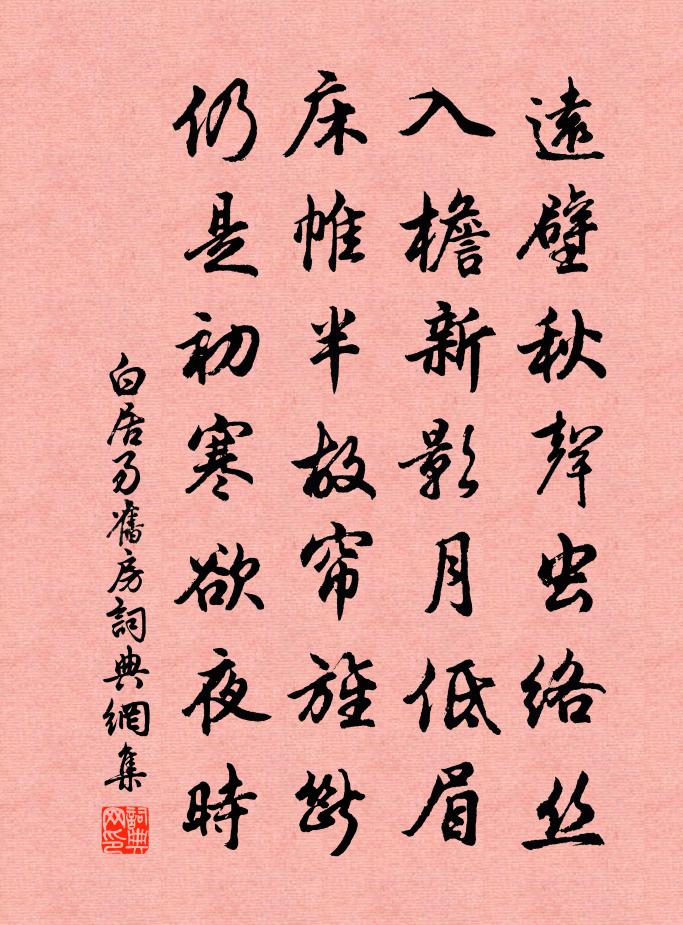 遠壁秋聲虫絡丝
入檐新影月低眉
床帷半故帘旌斷
仍是初寒欲夜時
白居易舊房詞典網集
詞典网印